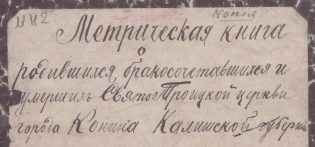 Копія
Метрическая книга
о
родившихся, бракосочетавшихся и
умершихъ Свято Троицкой церкви
города Конина Калишской губерніи